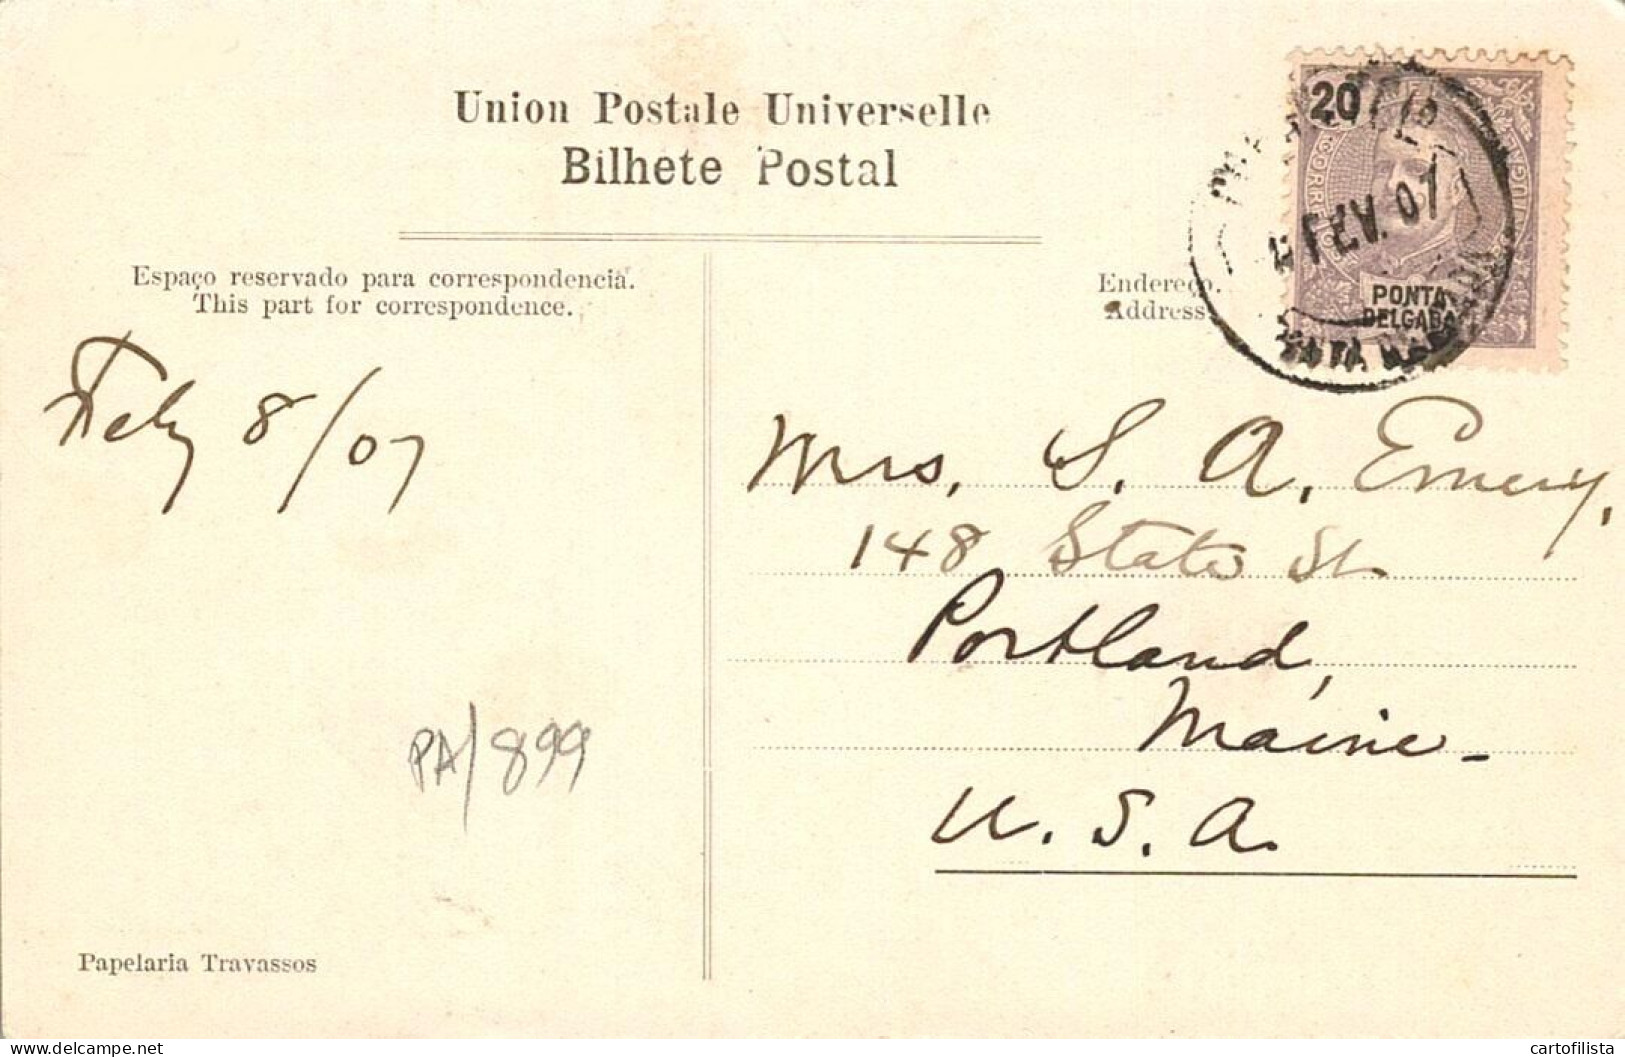 Union Postale Universelle
Bilhete Postal
20
FEV. 07
PONTA
DELGADA
Espaço reservado para correspondencia.
This part for correspondence.
Endereço.
Address.
Feby 8/07
Mrs. S. A. Emery,
148 State St.
Portland,
Maine -
U. S. A.
PA/899
Papelaria Travassos
www.delcampe.net
cartofilista